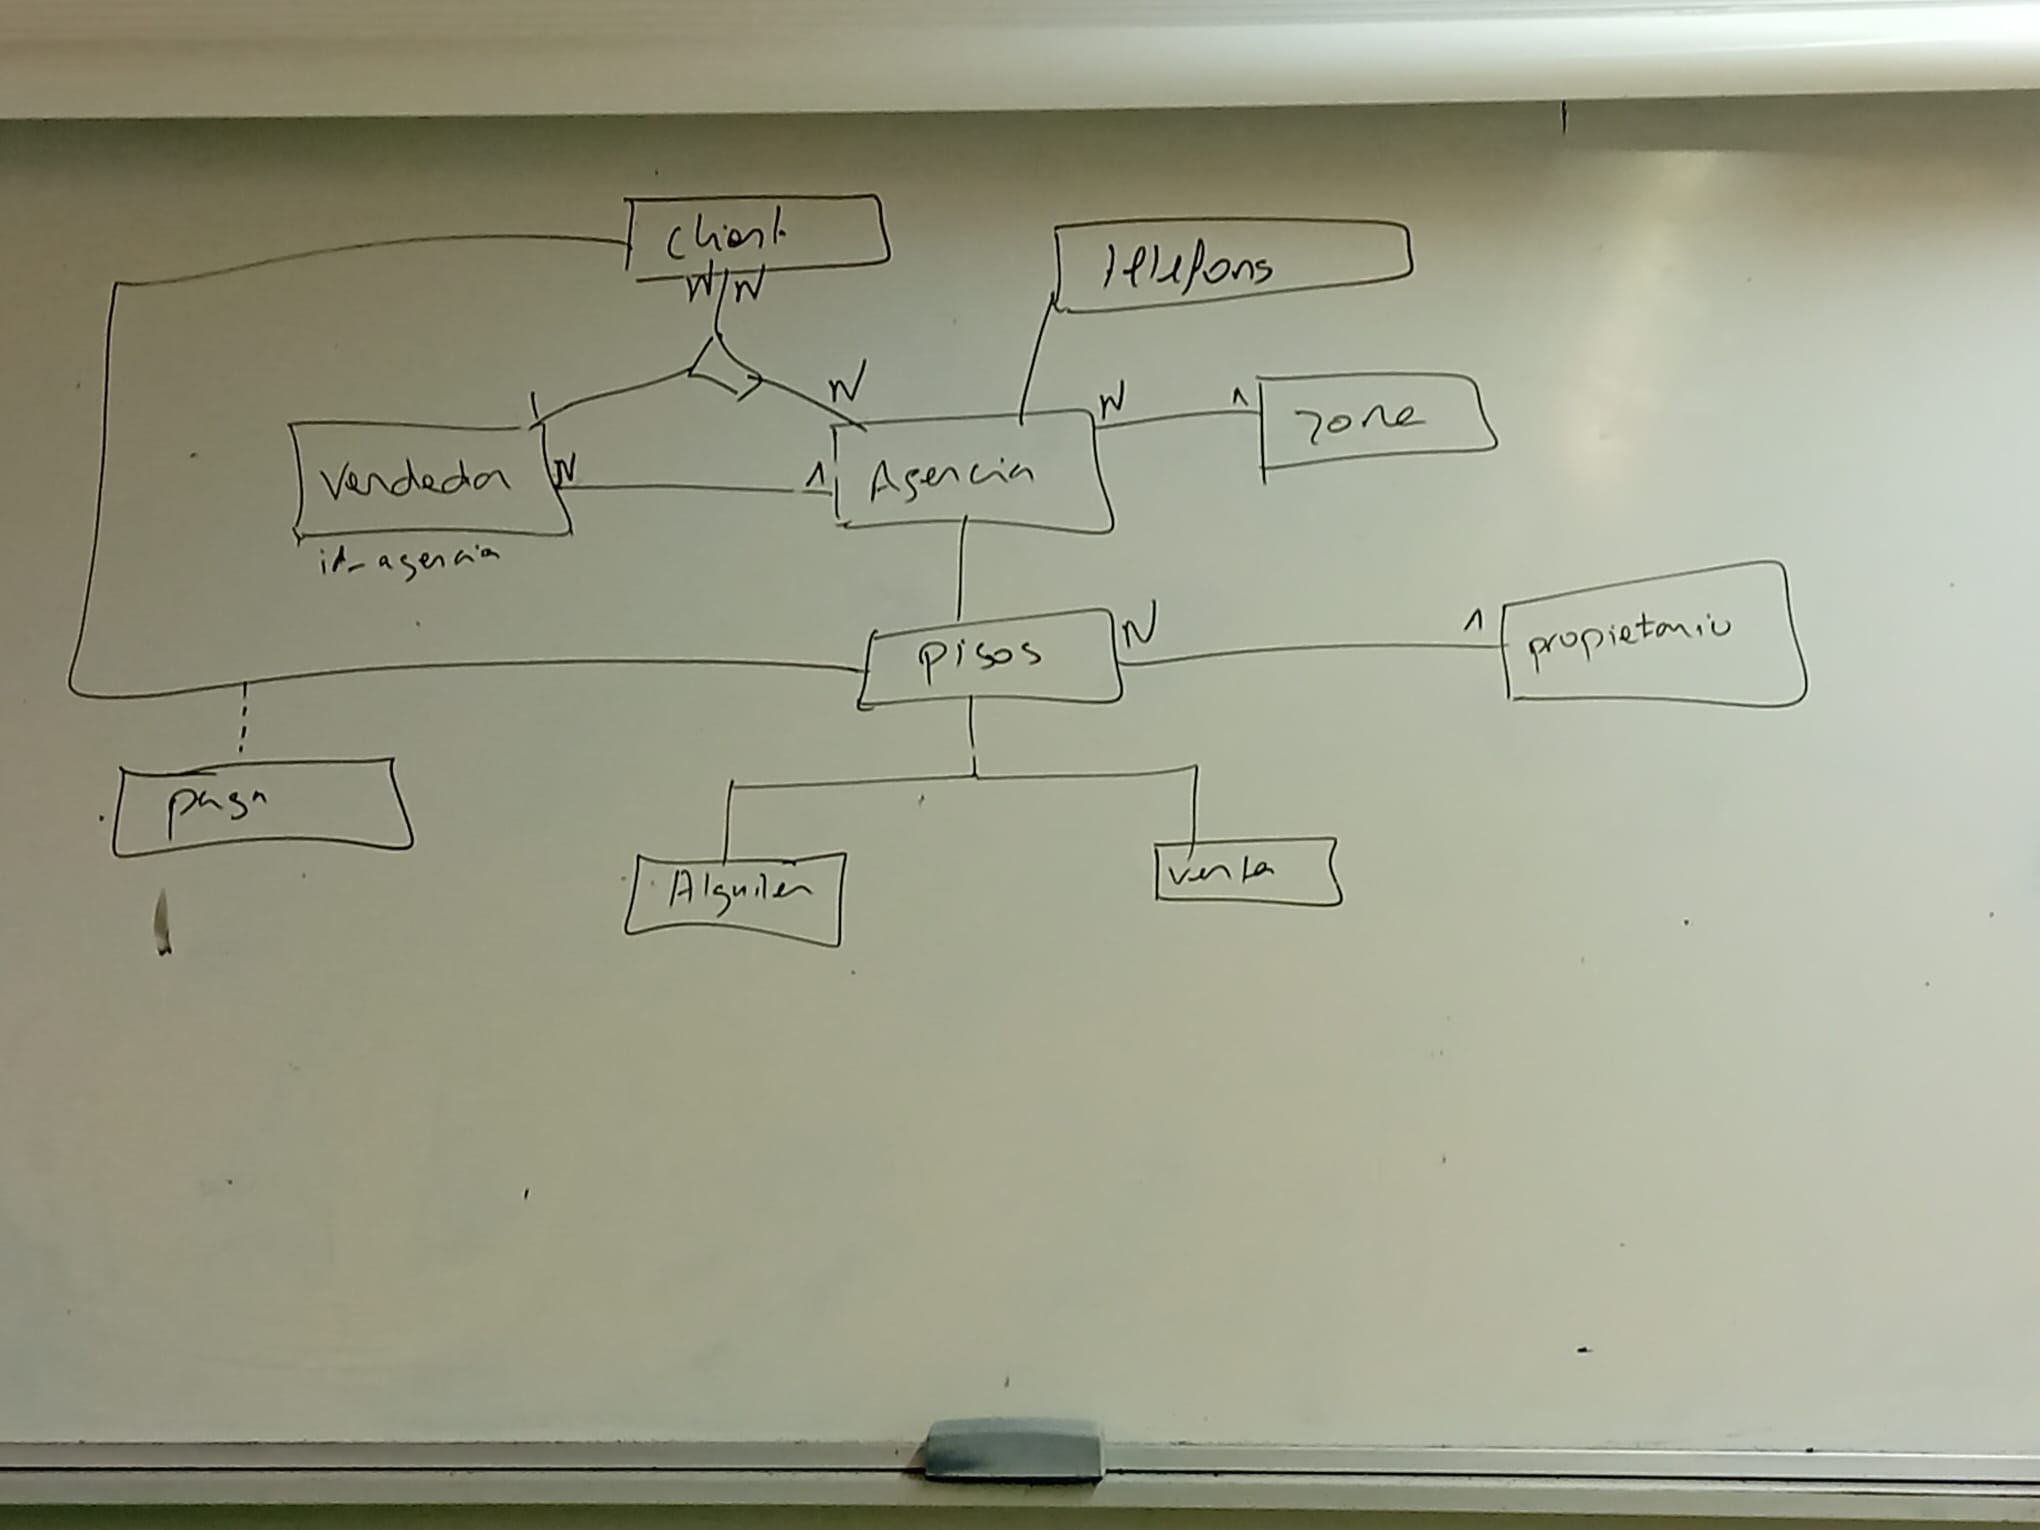 client
telefons
N N
N
1
N 1
zona
Vendedor
N 1
Agencia
id_agencia
pisos
N 1
propietario
paga
Alquiler
venta